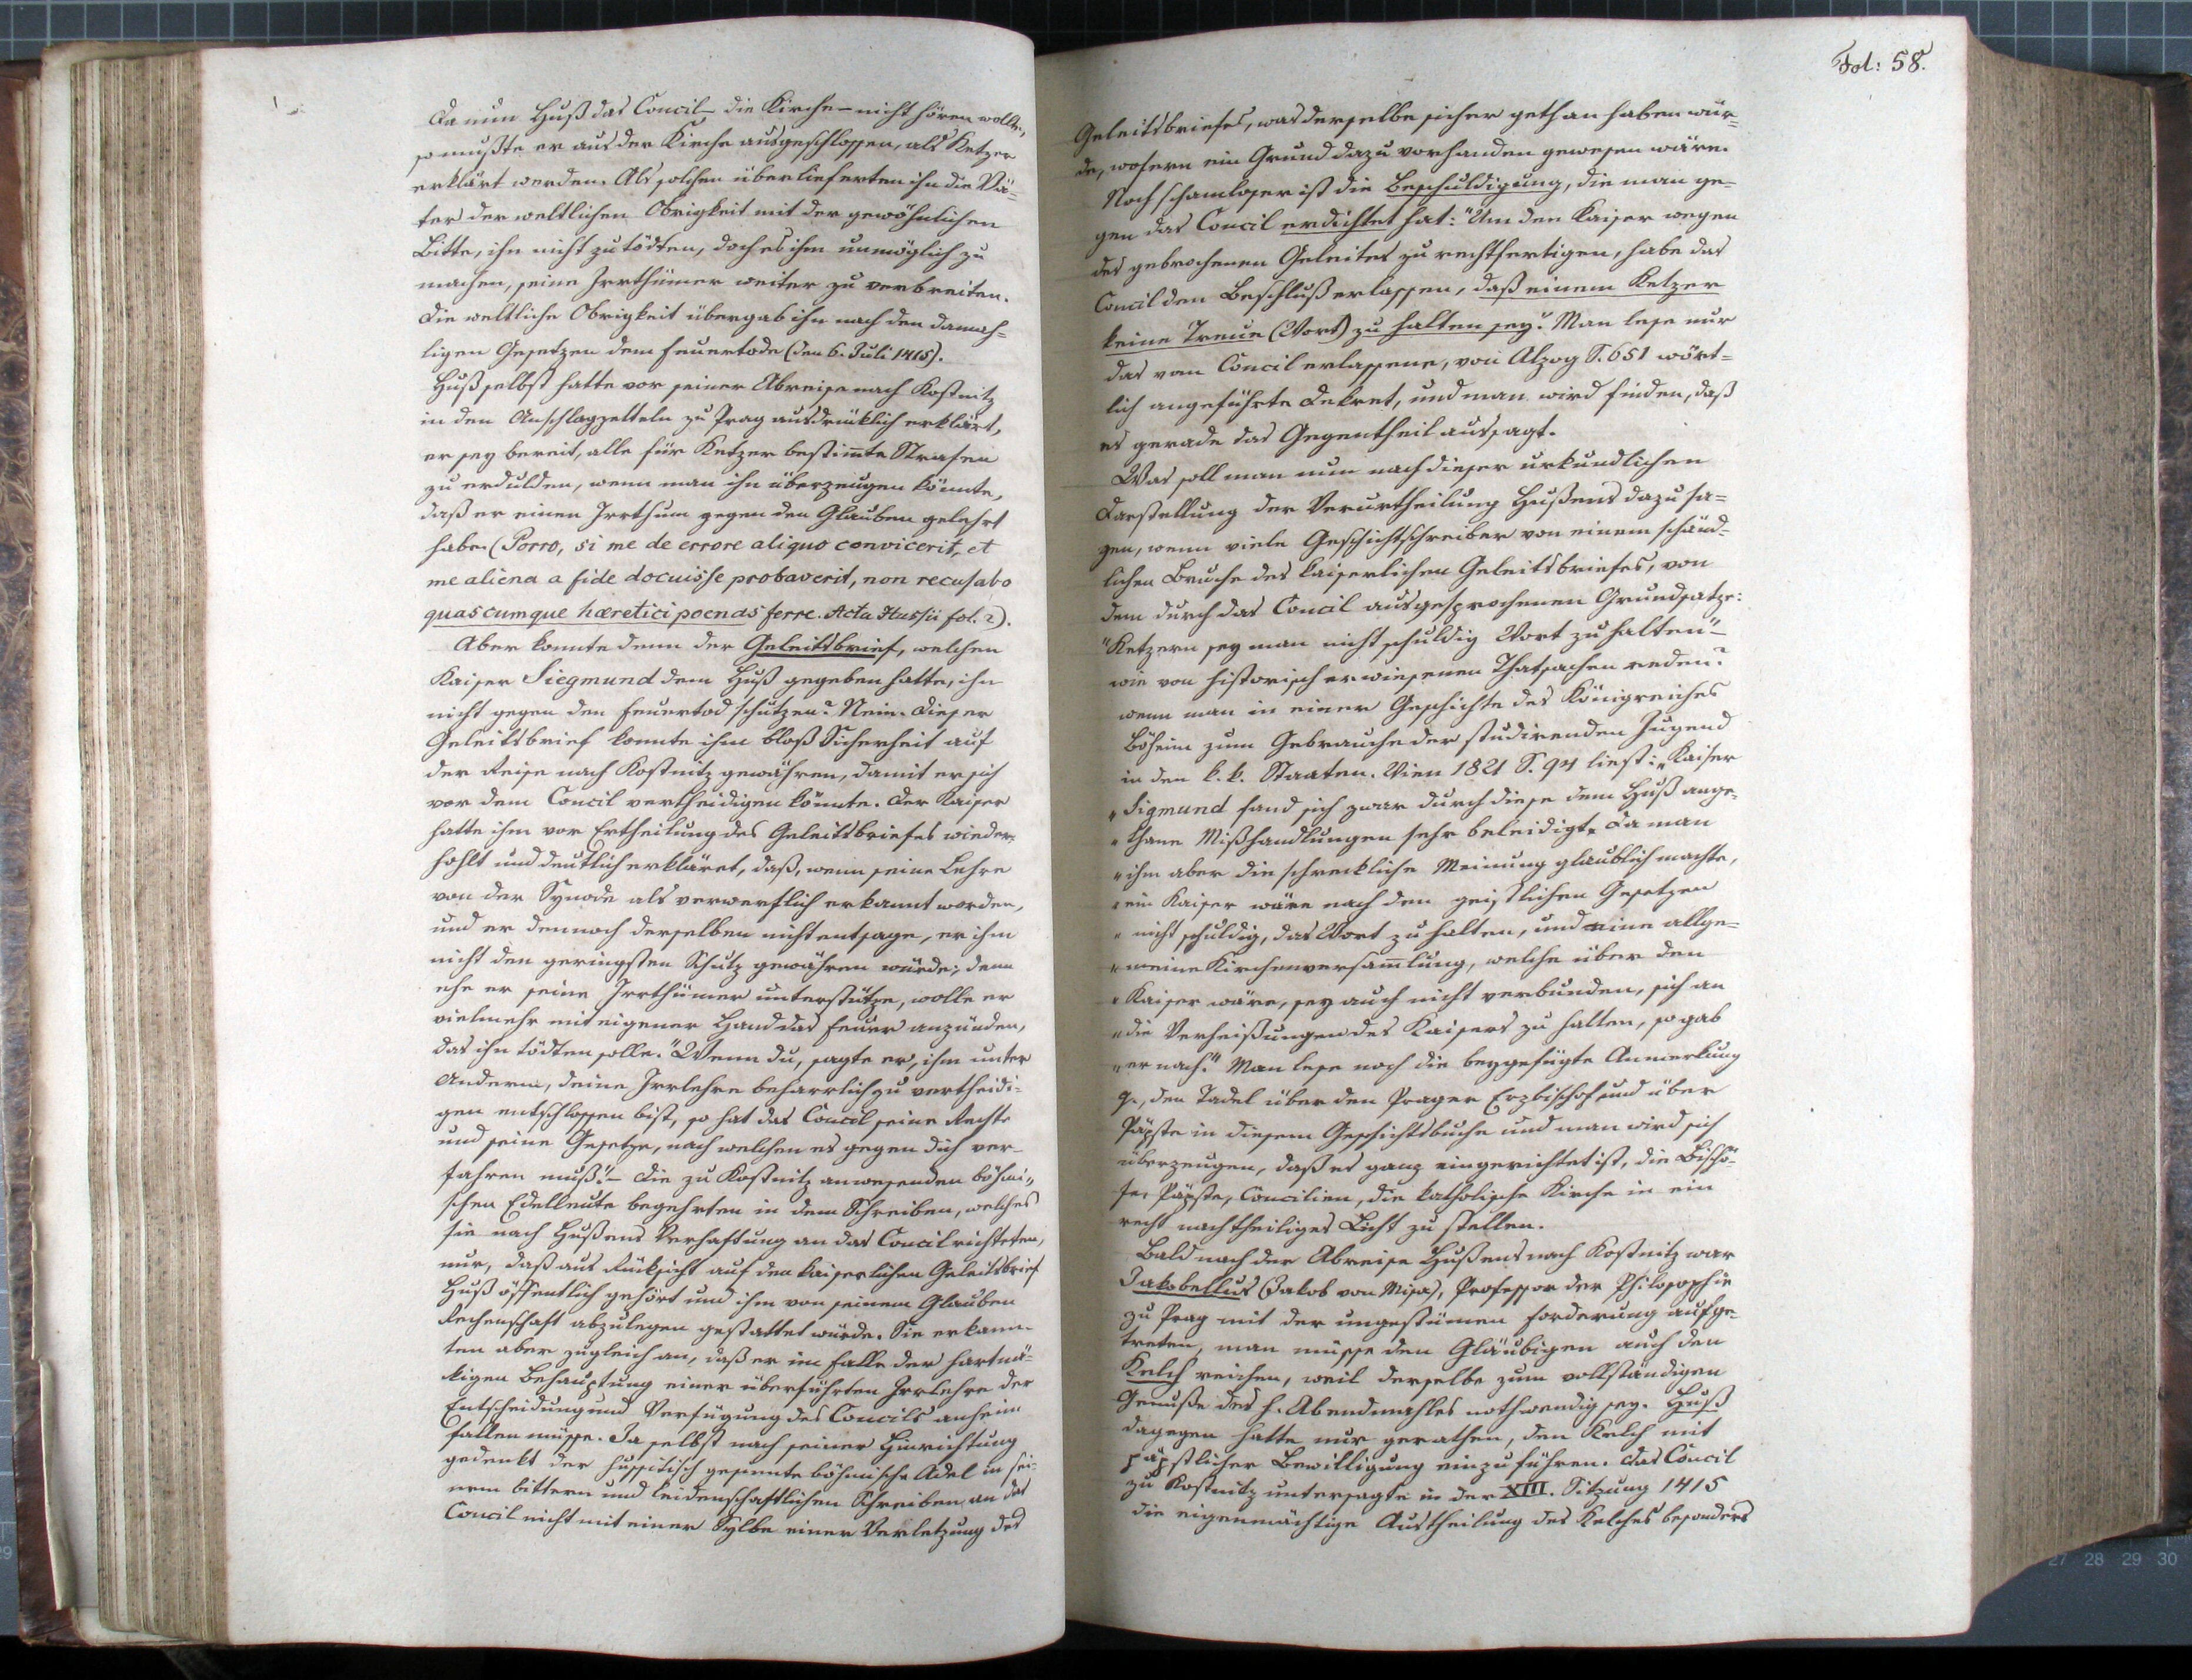 Da nun Huß das Concil – die Kirche – nicht hören wollte,
so mußte er aus der Kirche ausgeschlossen, als Ketzer
erklärt werden. Als solchen überlieferten ihn die Vä-
ter der weltlichen Obrigkeit mit der gewöhnlichen
Bitte, ihn nicht zu tödten, doch es ihm unmöglich zu
machen, seine Irrthümer weiter zu verbreiten.
Die weltliche Obrigkeit übergab ihn nach den damah-
ligen Gesetzen dem Feuertode (den 6. Juli 1415).
Huß selbst hatte vor seiner Abreise nach Kostnitz
in den Anschlagzetteln zu Prag ausdrücklich erklärt,
er sey bereit, alle für Ketzer bestimte Strafen
zu erdulden, wenn man ihn überzeugen könnte,
daß er einen Irrthum gegen den Glauben gelehrt
habe. (Porro, si me de errore aliquo convicerit, et
me aliena a fide docuisse probaverit, non recusabo
quascumque hæretici poenas ferre. Acta Hussii fol. 2).
Aber konnte denn der Geleitsbrief, welchen
Kaiser Siegmund dem Huß gegeben hatte, ihn
nicht gegen den Feuertod schützen? Nein. Dieser
Geleitsbrief konnte ihm bloß Sicherheit auf
der Reise nach Kostnitz gewähren, damit er sich
vor dem Concil vertheidigen könnte. Der Kaiser
hatte ihm vor Ertheilung des Geleitsbriefes wieder-
hohlt und deutlich erkläret, daß, wenn seine Lehre
von der Synode als verwerflich erkannt werden,
und er dennoch derselben nicht entsage, er ihm
nicht den geringsten Schutz gewähren würde; denn
ehe er seine Irrthümer unterstütze, wolle er
vielmehr mit eigener Hand das Feuer anzünden,
das ihn tödten solle. "Wenn du, sagte er, ihm unter
Anderm, deine Irrlehre beharrlich zu vertheidi-
gen entschlossen bist, so hat das Concil seine Rechte
und seine Gesetze, nach welchen es gegen dich ver-
fahren muß." – Die zu Kostnitz anwesenden böhmi-
schen Edelleute begehrten in dem Schreiben, welches
sie nach Hußens Verhaftung an das Concil richteten,
nur, daß aus Rücksicht auf den kaiserlichen Geleitsbrief
Huß öffentlich gehört und ihm von seinem Glauben
Rechenschaft abzulegen gestattet würde. Sie erkann-
ten aber zugleich an, daß er im Falle der hartnä-
kigen Behauptung einer überführten Irrlehre der
Entscheidung und Verfügung des Concils anheim
fallen müsse. Ja selbst nach seiner Hinrichtung
gedenkt der hussitisch gesinnte böhmische Adel in sei-
nem bittern und leidenschaftlichen Schreiben an das
Concil nicht mit einer Sylbe einer Verletzung des
Fol: 58.
Geleitsbriefes, was derselbe sicher gethan haben wür-
de, wofern ein Grund dazu vorhanden gewesen wäre.
Noch schamloser ist die Beschuldigung, die man ge-
gen das Concil erdichtet hat: "Um den Kaiser wegen
des gebrochenen Geleites zu rechtfertigen, habe das
Concil den Beschluß erlassen, daß einem Ketzer
keine Treue (Wort) zu halten sey." Man lese nur
das vom Concil erlassene, von Alzog S. 651 wört-
lich angeführte Dekret, und man wird finden, daß
es gerade das Gegentheil aussagt.
Was soll man nun nach dieser urkundlichen
Darstellung der Verurtheilung Hußens dazu sa-
gen, wenn viele Geschichtschreiber von einem schänd-
lichen Bruche des kaiserlichen Geleitsbriefes, von
dem durch das Concil ausgesprochenen Grundsatze:
"Ketzern sey man nicht schuldig Wort zu halten" –
wie von historisch erwiesenen Thatsachen reden?
wenn man in einer Geschichte des Königreiches
Böheim zum Gebrauche der studirenden Jugend
in den k. k. Staaten. Wien 1821 S. 94 liest: "Kaiser
"Sigmund fand sich zwar durch diese dem Huß ange-
"thane Mißhandlungen sehr beleidigt. Da man
"ihm aber die schreckliche Meinung glaublich machte,
"ein Kaiser wäre nach den geistlichen Gesetzen
"nicht schuldig, das Wort zu halten, und eine allge-
"meine Kirchenversamlung, welche über den
"Kaiser wäre, sey auch nicht verbunden, sich an
"die Verheißungen des Kaisers zu halten, so gab
"er nach." Man lese noch die beygefügte Anmerkung
q., den Tadel über den Prager Erzbischof und über
Päpste in diesem Geschichtsbuche und man wird sich
überzeugen, daß es ganz eingerichtet ist, die Bischö-
fe, Päpste, Concilien, die katholische Kirche in ein
recht nachtheiliges Licht zu stellen.
Bald nach der Abreise Hußens nach Kostnitz war
Jakobellus (Jakob von Misa), Professor der Philosophie
zu Prag mit der ungestümen Forderung aufge-
treten, man müsse den Gläubigen auch den
Kelch reichen, weil derselbe zum vollständigen
Genuße des h. Abendmahles nothwendig sey. Huß
dagegen hatte nur gerathen, den Kelch mit
päpstlicher Bewilligung einzuführen. Das Concil
zu Kostnitz untersagte in der XIII. Sitzung 1415
die eigenmächtige Austheilung des Kelches besonders